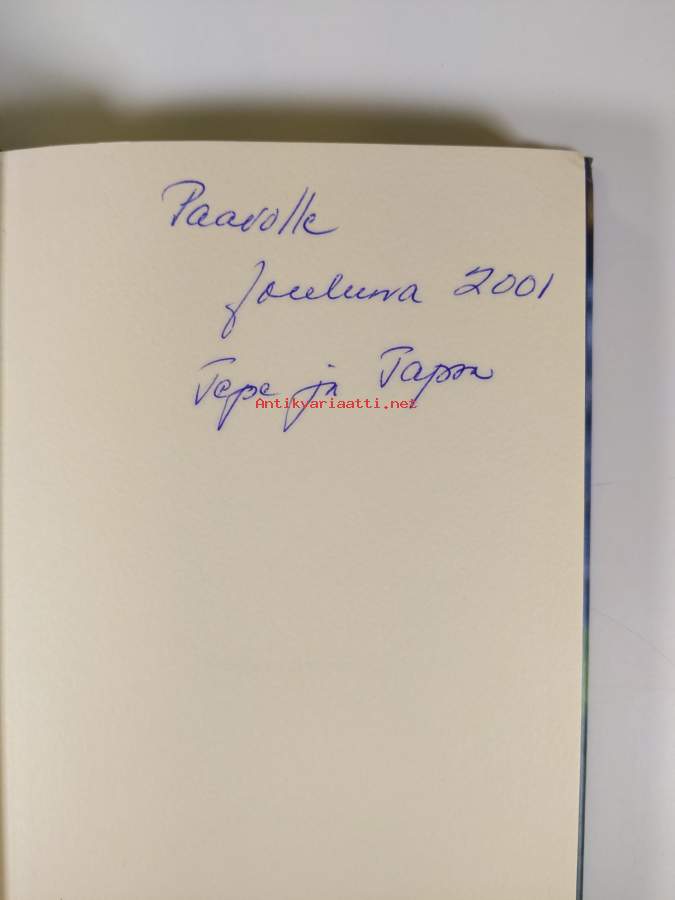 Paavolle
Jouluna 2001
Tepa ja Tapsa
Antikvariaatti.net